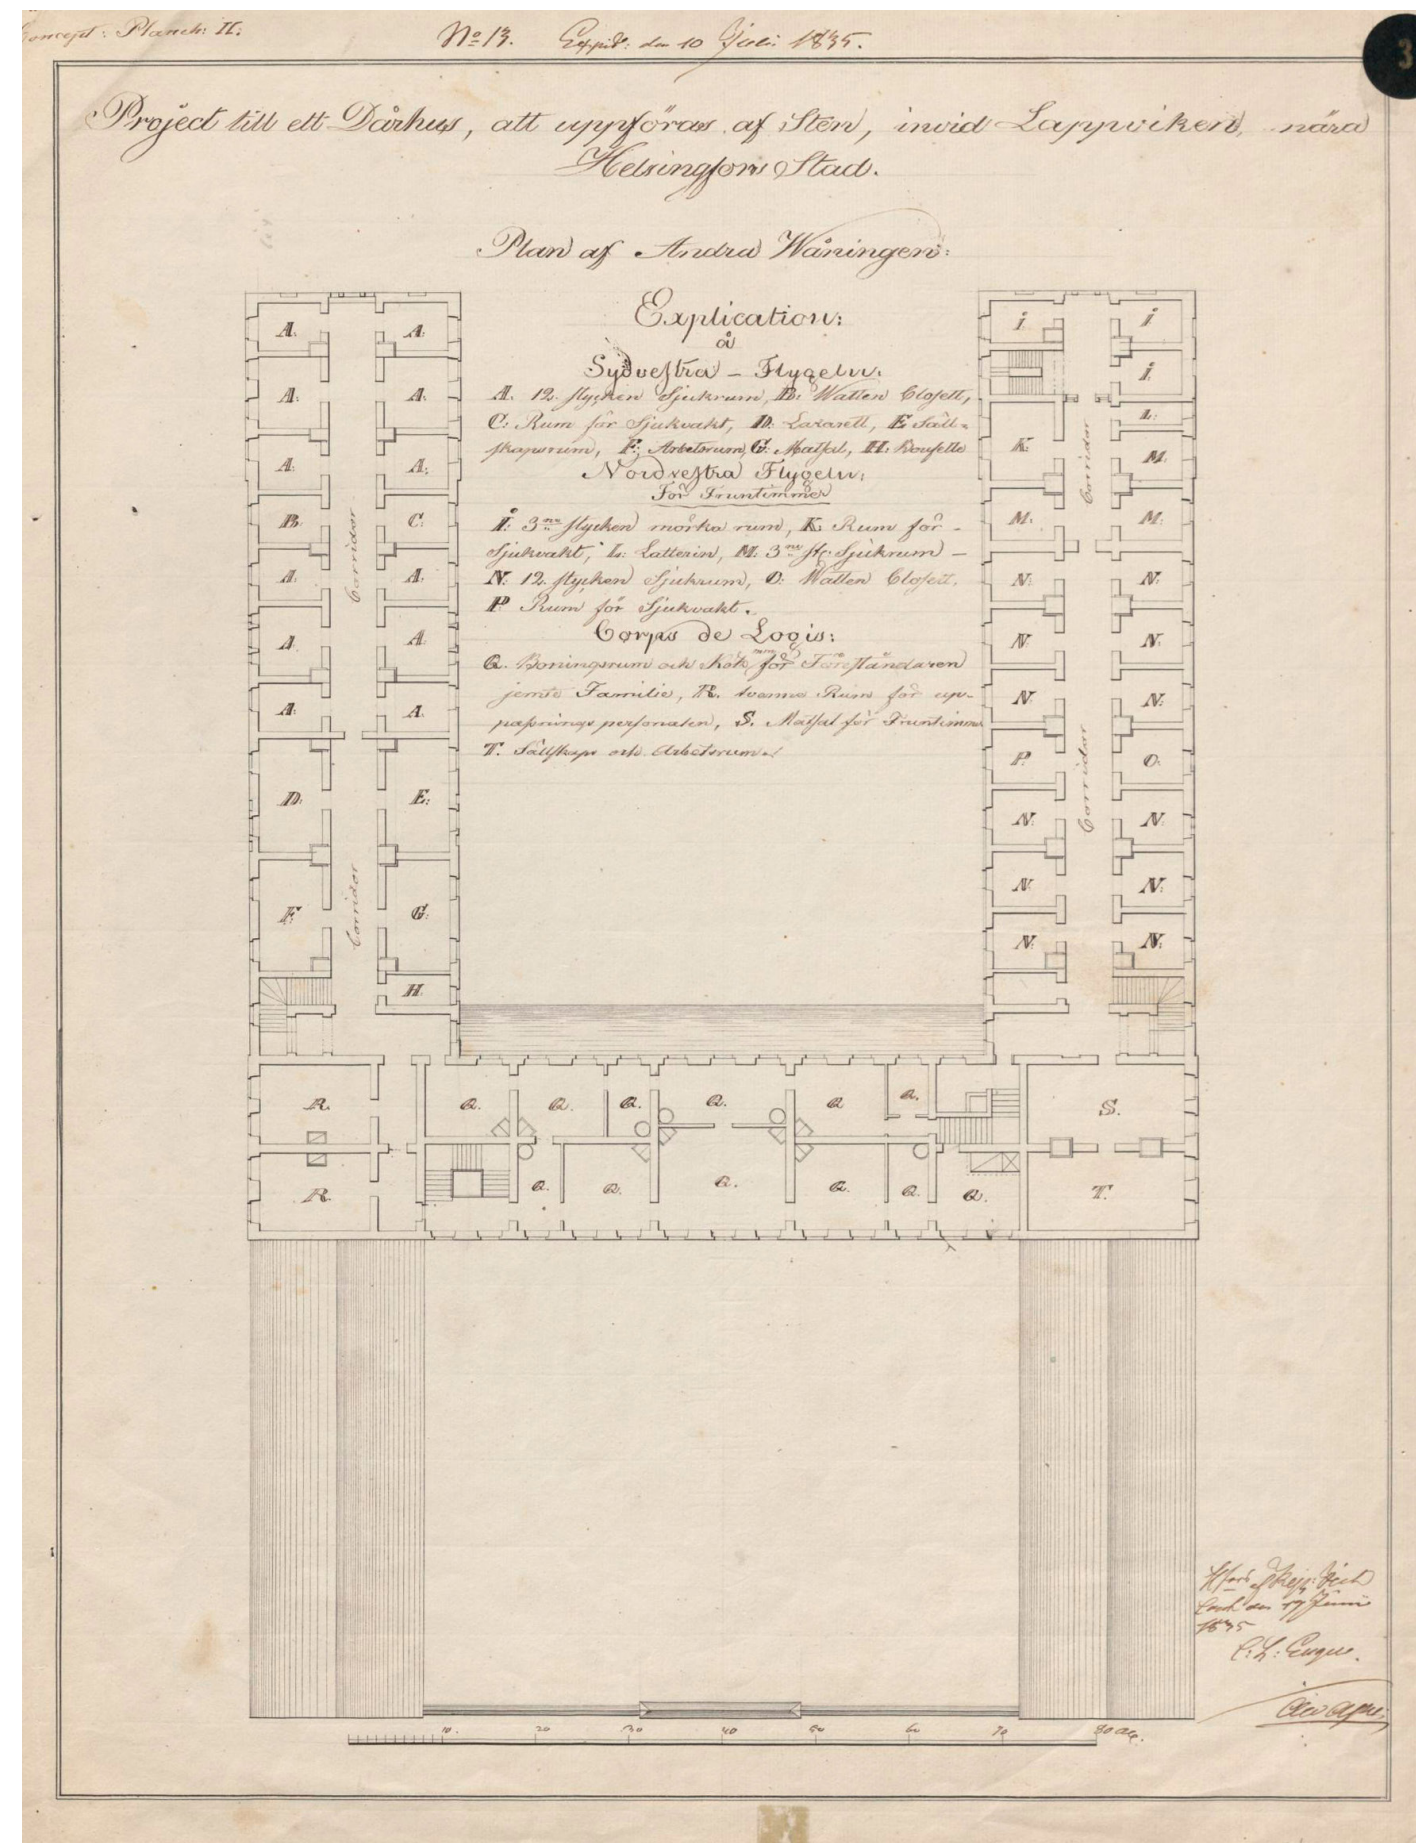 Concept: Planch: II.
No 13. Exped: den 10 Julii 1835.
3
Project till ett Dårhus, att uppföras af Sten, invid Lappviken, nära
Helsingfors Stad.
Plan af Andra Wåningen:
Explication:
å
Sydvestra - Flygeln:
A. 12. stycken Sjukrum, B: Watten Closett,
C: Rum för Sjukvakt, D: Lazarett, E Säll=
skapsrum, F: Arbetsrum, G: Matsal, H:
Nordvestra Flygeln:
För Fruntimmer
I: 3ne stycken mörka rum, K: Rum för -
Sjukvakt, L: Latterin, M: 3ne st: Sjukrum -
N: 12. stycken Sjukrum, O: Watten Closett.
P Rum för Sjukvakt.
Corps de Logis:
Q. Boningsrum och Kök för Föreståndaren
jemte Familie, R. tvenne Rum för up-
passnings personalen, S. Matsal för Fruntimm
T. Sällskaps och Arbetsrum.
A. A. i i
A. A. i.
A. A. K. L: M.
B. C. M. M.
A. A. N. N.
A. A. N. N.
A. A. N. N.
D. E. P. O.
F. G. N. N.
N. N.
H. N. N.
Corridor
Corridor
Corridor
Corridor
R. Q. Q. Q. Q. Q Q. S.
R. Q. Q. Q. Q. Q. Q. T.
10. 20 30 40 50 60 70 80 Al.
den 19 Junii
1835
C: L: Engel.